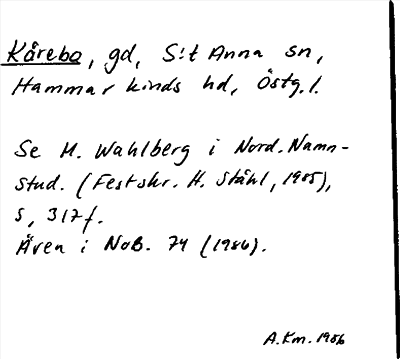 Kårebo, gd, S:t Anna sn,
Hammarkinds hd, Östg.l.
Se M. Wahlberg i Nord. Namn-
stud. (Festskr. H. Ståhl, 1985),
s. 317f.
Även i NoB. 74 (1986).
A.Km. 1986